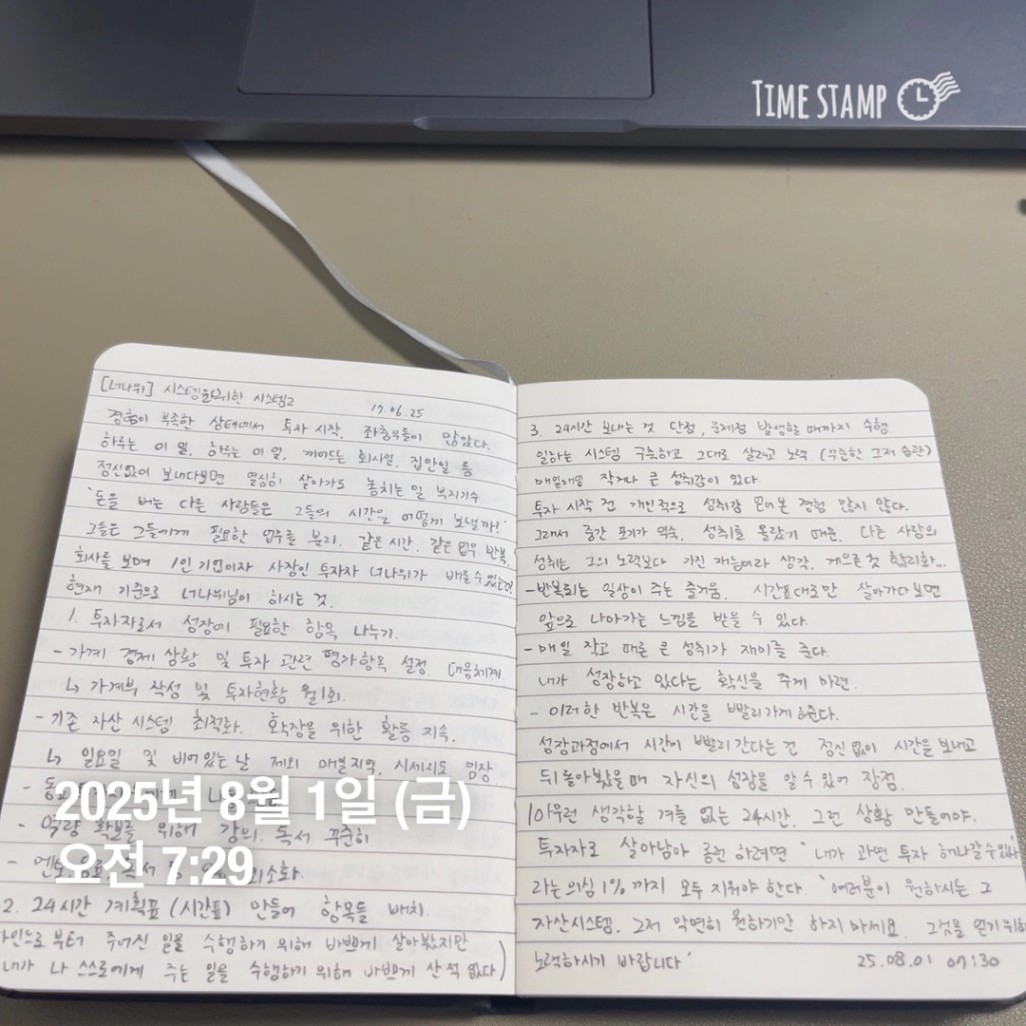 TIME STAMP
[너나위] 시스템을 위한 시스템2 17.06.25
경험이 부족한 상태에서 투자 시작. 좌충우돌이 많았다.
하루는 이 일, 하루는 이 일, 끼어드는 회사일, 집안일 등
정신없이 보내다보면 열심히 살아가도 놓치는 일 부지기수
'돈을 버는 다른 사람들은 그들의 시간을 어떻게 보낼까?'
그들은 그들에게 필요한 업무를 분리. 같은 시간, 같은 업무 반복.
회사를 보며 1인 기업이자 사장인 투자자 너나위가 배울 수 있는것?
현재 기준으로 너나위님이 하시는 것.
1. 투자자로서 성장에 필요한 항목 나누기.
- 가계 경제 상황 및 투자 관련 평가항목 설정. 대응체계.
↳ 가계부 작성 및 투자현황 월1회.
- 기존 자산 시스템 최적화. 확장을 위한 활동 지속.
↳ 일요일 및 비어있는 날 제외 매일 지역, 시세지도 임장
- 역량 확보를 위해 강의. 독서 꾸준히
2. 24시간 계획표 (시간표) 만들어 항목들 배치.
부터 주어진 일을 수행하기 위해 바쁘게 살아봤지만
내가 나 스스로에게 주는 일을 수행하기 위해 바쁘게 산 적 없다)
3. 24시간 보내는 것 단점, 문제점 발생할 때까지 수행.
일하는 시스템 구축하고 그대로 살려고 노력 (꾸준한 그저 습관)
매일매일 작거나 큰 성취감이 있다.
투자 시작 전 개인적으로 성취감 얻어본 경험 많지 않다.
그래서 중간 포기가 익숙. 성취를 몰랐기 때문. 다른 사람의
성취는 그의 노력보다 가진 재능이라 생각. 게으른 것 합리화...
- 반복되는 일상이 주는 즐거움. 시간표대로만 살아가다보면
앞으로 나아가는 느낌을 받을 수 있다.
- 매일 작고 때론 큰 성취가 재미를 준다.
내가 성장하고 있다는 확신을 주게 마련.
- 이러한 반복은 시간을 빨리가게 한다.
성장과정에서 시간이 빨리 간다는 건 정신없이 시간을 보내고
뒤돌아봤을 때 자신의 성장을 알 수 있어 장점.
아무런 생각할 겨를 없는 24시간. 그런 상황 만들어야.
투자자로 살아남아 롱런 하려면 '내가 과연 투자 해나갈 수 있나'
라는 의심 1%까지 모두 지워야 한다. '여러분이 원하시는 그
자산시스템. 그저 막연히 원하기만 하지 마세요. 그것을 얻기 위해
노력하시기 바랍니다' 25.08.01 07:30
2025년 8월 1일 (금)
오전 7:29